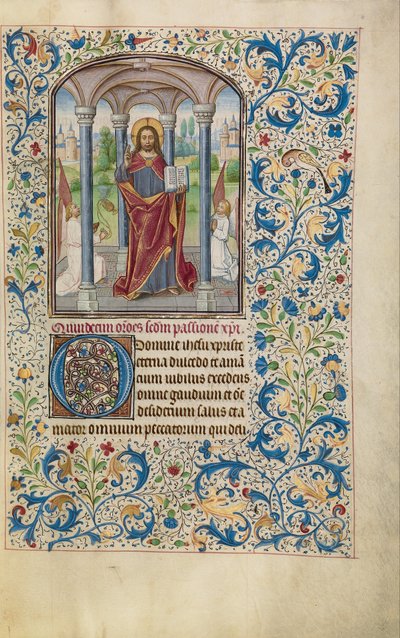 Quindecim orones secdm passione xpi.
O Domine ihesu xpriste
eterna dulcedo et amā
cium iubilus excedens
omne gaudium et oē
desiderium salus et a
mator omnium peccatorum qui deli